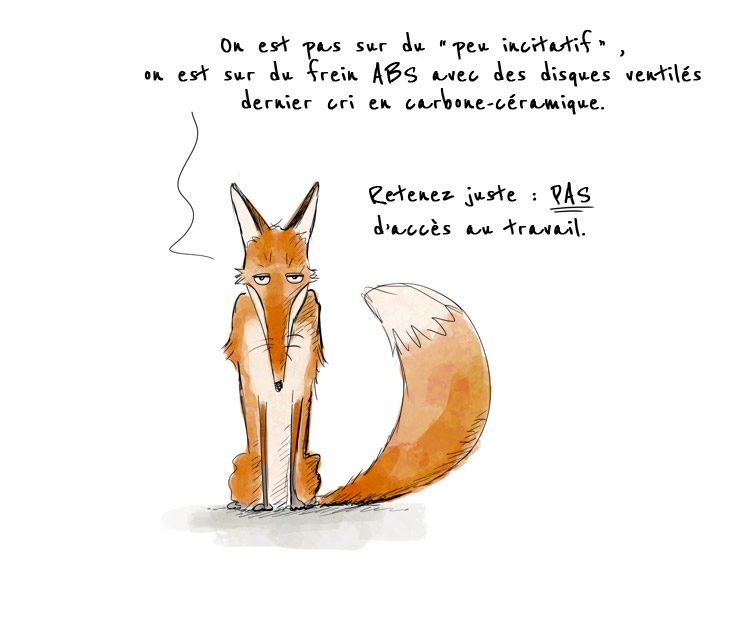 On est pas sur du "peu incitatif",
on est sur du frein ABS avec des disques ventilés
dernier cri en carbone-céramique.
Retenez juste : PAS
d'accès au travail.